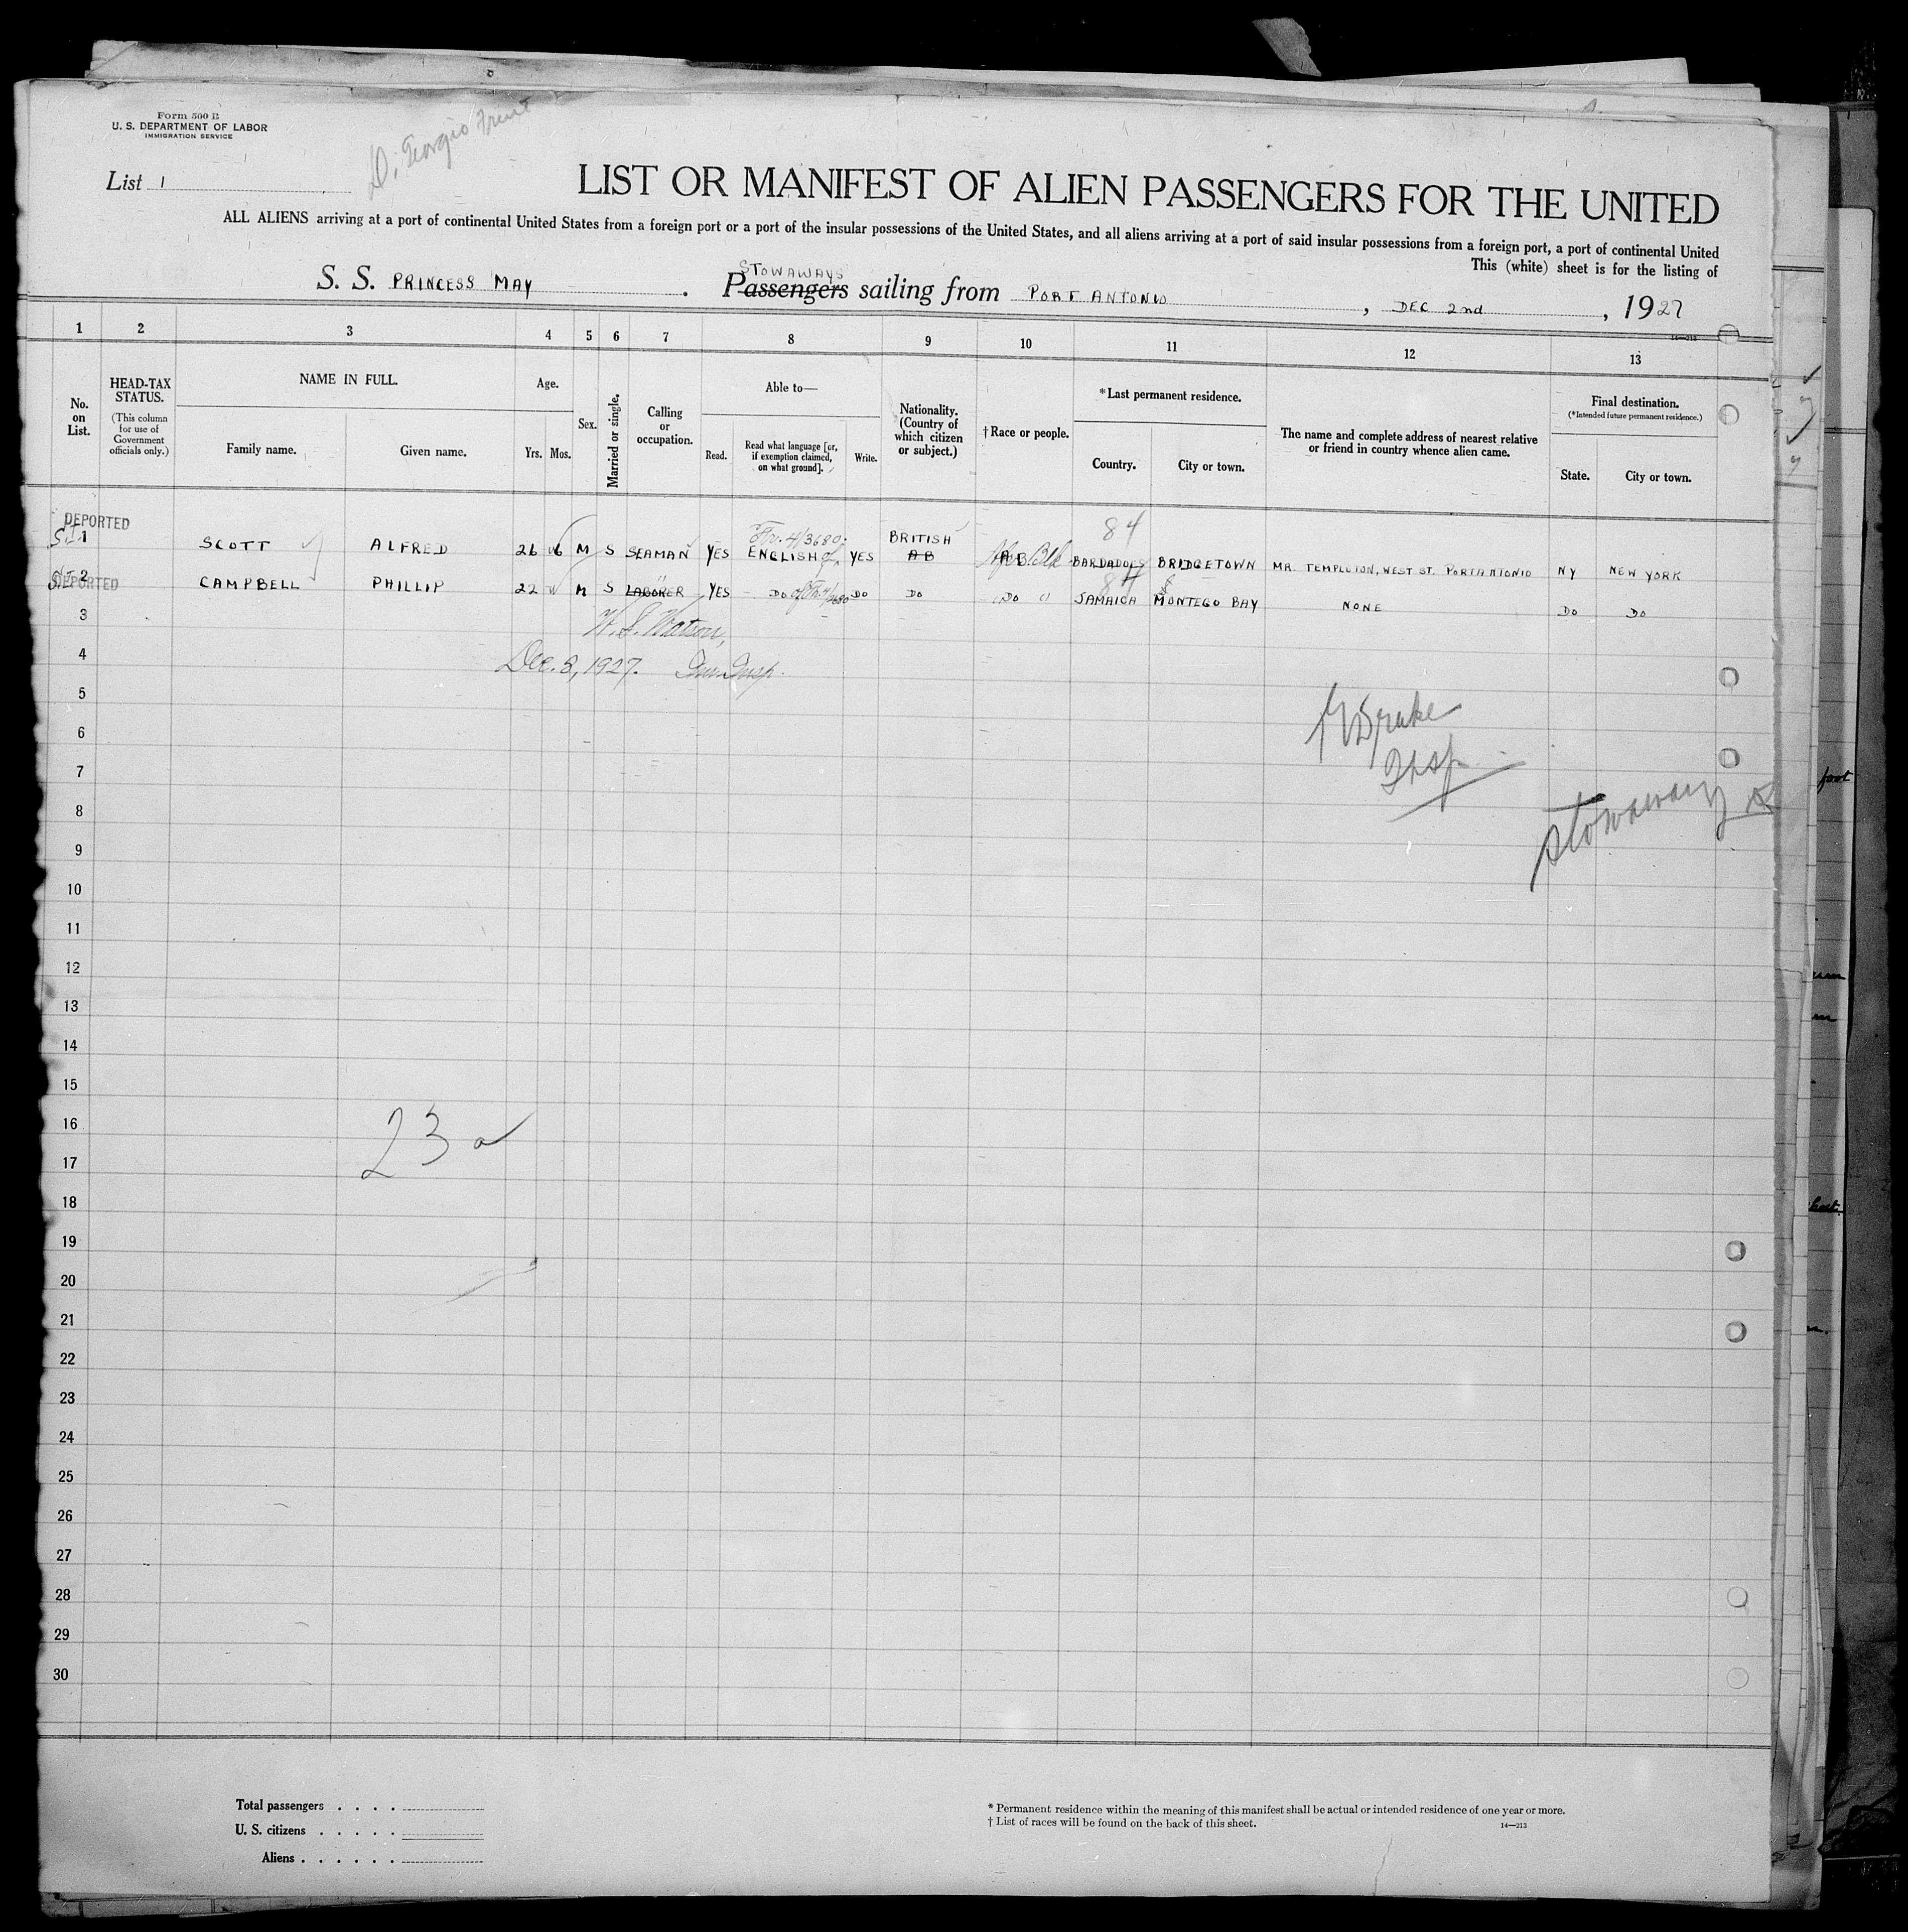 Form 500 B
U. S. DEPARTMENT OF LABOR
IMMIGRATION SERVICE
Di Georgio Fruit
List 1
LIST OR MANIFEST OF ALIEN PASSENGERS FOR THE UNITED
ALL ALIENS arriving at a port of continental United States from a foreign port or a port of the insular possessions of the United States, and all aliens arriving at a port of said insular possessions from a foreign port, a port of continental United
This (white) sheet is for the listing of
STOWAWAYS
S. S. PRINCESS MAY. Passengers sailing from PORT ANTONIO, DEC 2nd, 1927
14—213
1 2 3 4 5 6 7 8 9 10 11 12 13
No. on List.
HEAD-TAX STATUS.
(This column for use of Government officials only.)
NAME IN FULL.
Family name.
Given name.
Age.
Yrs. Mos.
Sex.
Married or single.
Calling or occupation.
Able to—
Read.
Read what language [or, if exemption claimed, on what ground].
Write.
Nationality. (Country of which citizen or subject.)
†Race or people.
*Last permanent residence.
Country.
City or town.
The name and complete address of nearest relative or friend in country whence alien came.
Final destination.
(*Intended future permanent residence.)
State.
City or town.
DEPORTED
84
S.I. 1 SCOTT ALFRED 26 M S SEAMAN YES ENGLISH YES BRITISH AB AB Blk BARDADOES BRIDGETOWN MR. TEMPLETON, WEST ST. PORTANTONIO NY NEW YORK
DEPORTED
84
S.I. 2 CAMPBELL PHILLIP 22 M S LABORER YES DO DO DO DO JAMAICA MONTEGO BAY NONE DO DO
3
W. S. Watson,
4
Dec. 8, 1927. Imm. Insp.
5
6
Drake
7
Insp
8
Stowaway
9
10
11
12
13
14
15
16
23 a
17
18
19
20
21
22
23
24
25
26
27
28
29
30
Total passengers . . . .
U. S. citizens . . . . .
Aliens . . . . . .
* Permanent residence within the meaning of this manifest shall be actual or intended residence of one year or more.
† List of races will be found on the back of this sheet.
14—213